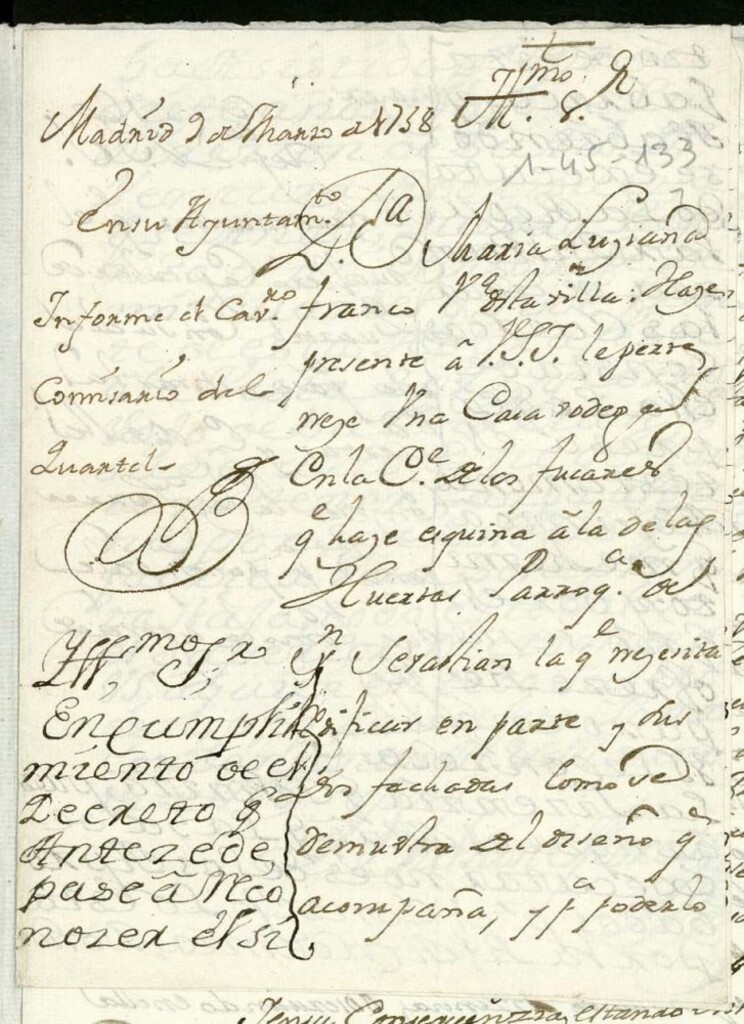 Yllmo. Sr.
Madrid 9 de Marzo de 1738
1-45-133
En su Ayuntamto.
Informe el Cavro.
Comisario del
Quartel
Da. Maria Luziana
franco Va. desta villa: Haze
presente â V.S.I. le perte
neze Vna Casa
En la Ce. de los fucares
qe haze esquina â la de las
Huertas Parroqa. de
Sn Sebastian la qe nezesita
Redificar en parte y sus
dos fachadas Como se
demuestra del diseño qe
acompaña, y pa poderlo
Yllmo Sr
En Cumpli
miento de el
Decreto qe
Antezede,
pase â Reco
nozer el si